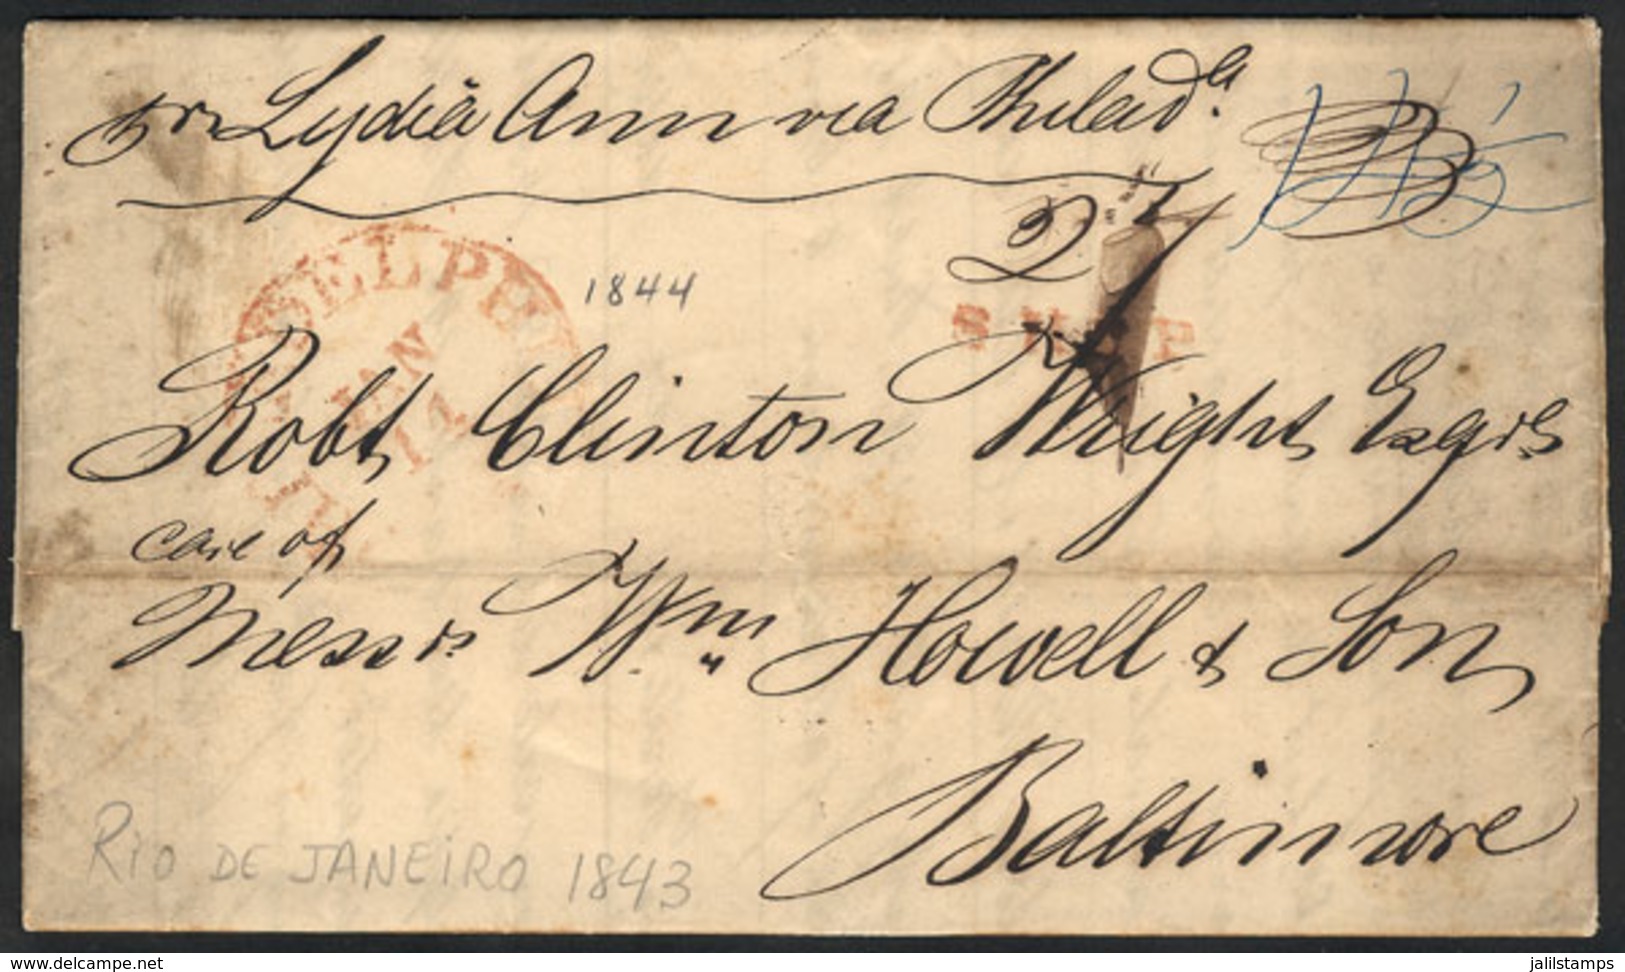 pr Lydia Ann via Philada.
27
SHIP
1844
DELPHI
JAN
14
Robt Clinton Wright Esqre
care of
Messrs. Wm Howell & Son
Baltimore
RIO DE JANEIRO 1843
delcampe.net
jalilstamps